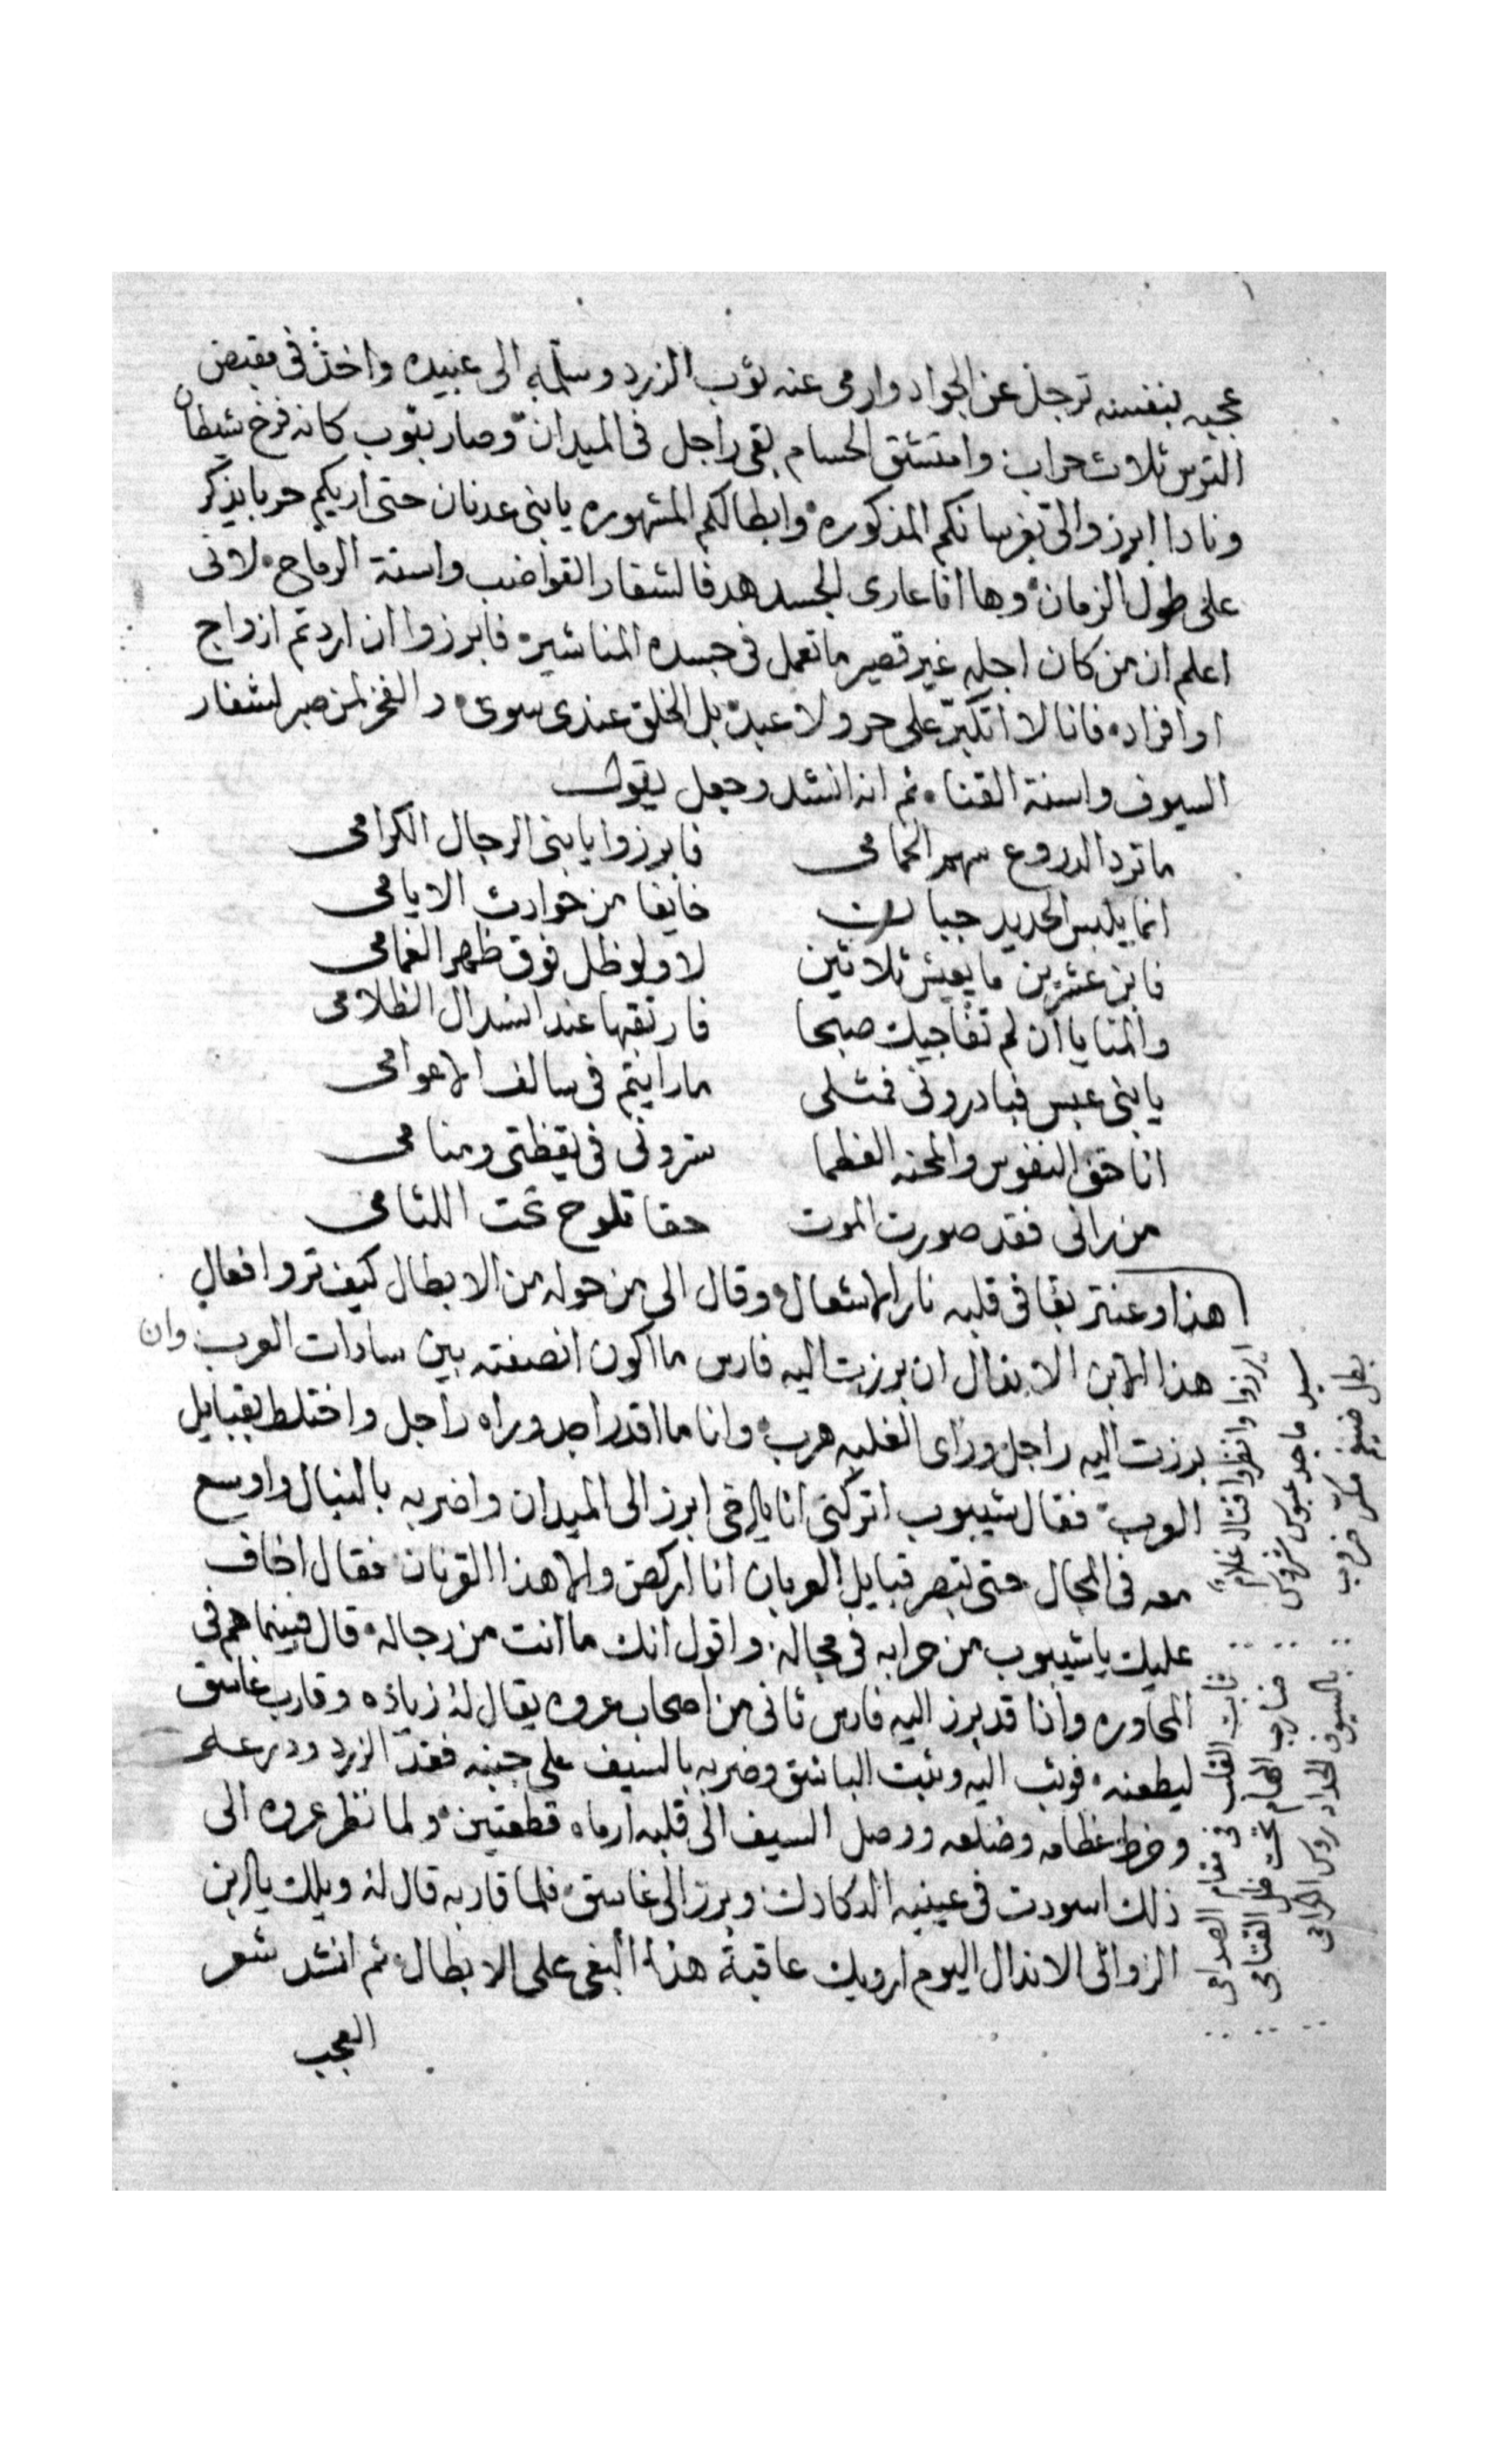 عجبه بنفسه ترجل عن الجواد وارمى عنه ثوب الزرد وسلمه الى عبيده واخذ فى مقبض
الترس ثلاث حراب وامتشق الحسام بقى راجل فى الميدان وصار بثوب كانه فرخ شيطان
ونادا ابرزوا الىّ بفرسانكم المذكوره وابطالكم المشهوره يا بنى عدنان حتى اريكم حربا يذكر
على طول الزمان وها انا عارى الجسد هدفا لشفار القواضب واسنة الرماح لانى
اعلم ان من كان اجله غير قصير ما تعمل فى جسده المناشير فابرزوا ان اردتم ازواج
او افراد فانا لا اتكبر على حر ولا عبد بل الخلق عندى سوى والفخر لمن صبر لشفار
السيوف واسنة القنا ثم انه انشد وجعل يقول
ما ترد الدروع سهم الحمامى فابرزوا يا بنى الرجال الكرامى
انما يلبس الحديد جبان خايفا من حوادث الايامى
فابن عشرين ما يعيش ثلاثين لا ولو ظل فوق ظهر الغمامى
والمنايا ان لم تفاجيك صبحا فارتقبها عند انسدال الظلامى
يا بنى عبس فبادرونى فمثلى ما رايتم فى سالف الاعوامى
انا حتف النفوس والمحنه العظما ترونى فى يقظتى ومنامى
من رانى فقد صورت الموت حقا تلوح تحت اللثامى
هذا وعنتر بقا فى قلبه نار الاشعال وقال الى من حوله من الابطال كيف تروا فعال
هذا ابن الاندال ان برزت اليه فارس ما اكون انصفته بين سادات العرب وان
برزت اليه راجل وراى الغلبه هرب وانا ما اقدر اجد وراه راجل واختلط بقبايل
العرب فقال شيبوب اتركنى انا ابرز الى الميدان واضربه بالنبال واوسع
معه فى المجال حتى تبصر قبايل العربان انا اركض والا هذا القرنان فقال اخاف
عليك يا شيبوب من حرابه فى مجاله واقول انك ما انت من رجاله قال فبينما هم فى
المحاوره واذا قد برز اليه فارس ثانى من اصحاب عروه يقال له زياده وقارب غاسق
ليطعنه فوثب اليه وثبت الباشق وضربه بالسيف على جنبه فقد الزرد
وخرط عظامه وضلعه ووصل السيف الى قلبه ارماه قطعتين ولما نظر عروه الى
ذلك اسودت فى عينيه الدكادك وبرز الى غاسق فلما قاربه قال له ويلك يا ابن
الزوانى الاندال اليوم اريك عاقبة هذا البغى على الابطال ثم انشد شعر
العجب
ابرزوا وانظروا قتال غلام ثابت القلب فى مقام الصدامى
سيد ماجد عبوس شروس ضارب الهام تحت ظل القتامى
بطل ضيغم مكر ضروب بالسيوف الحداد روس الكرامى